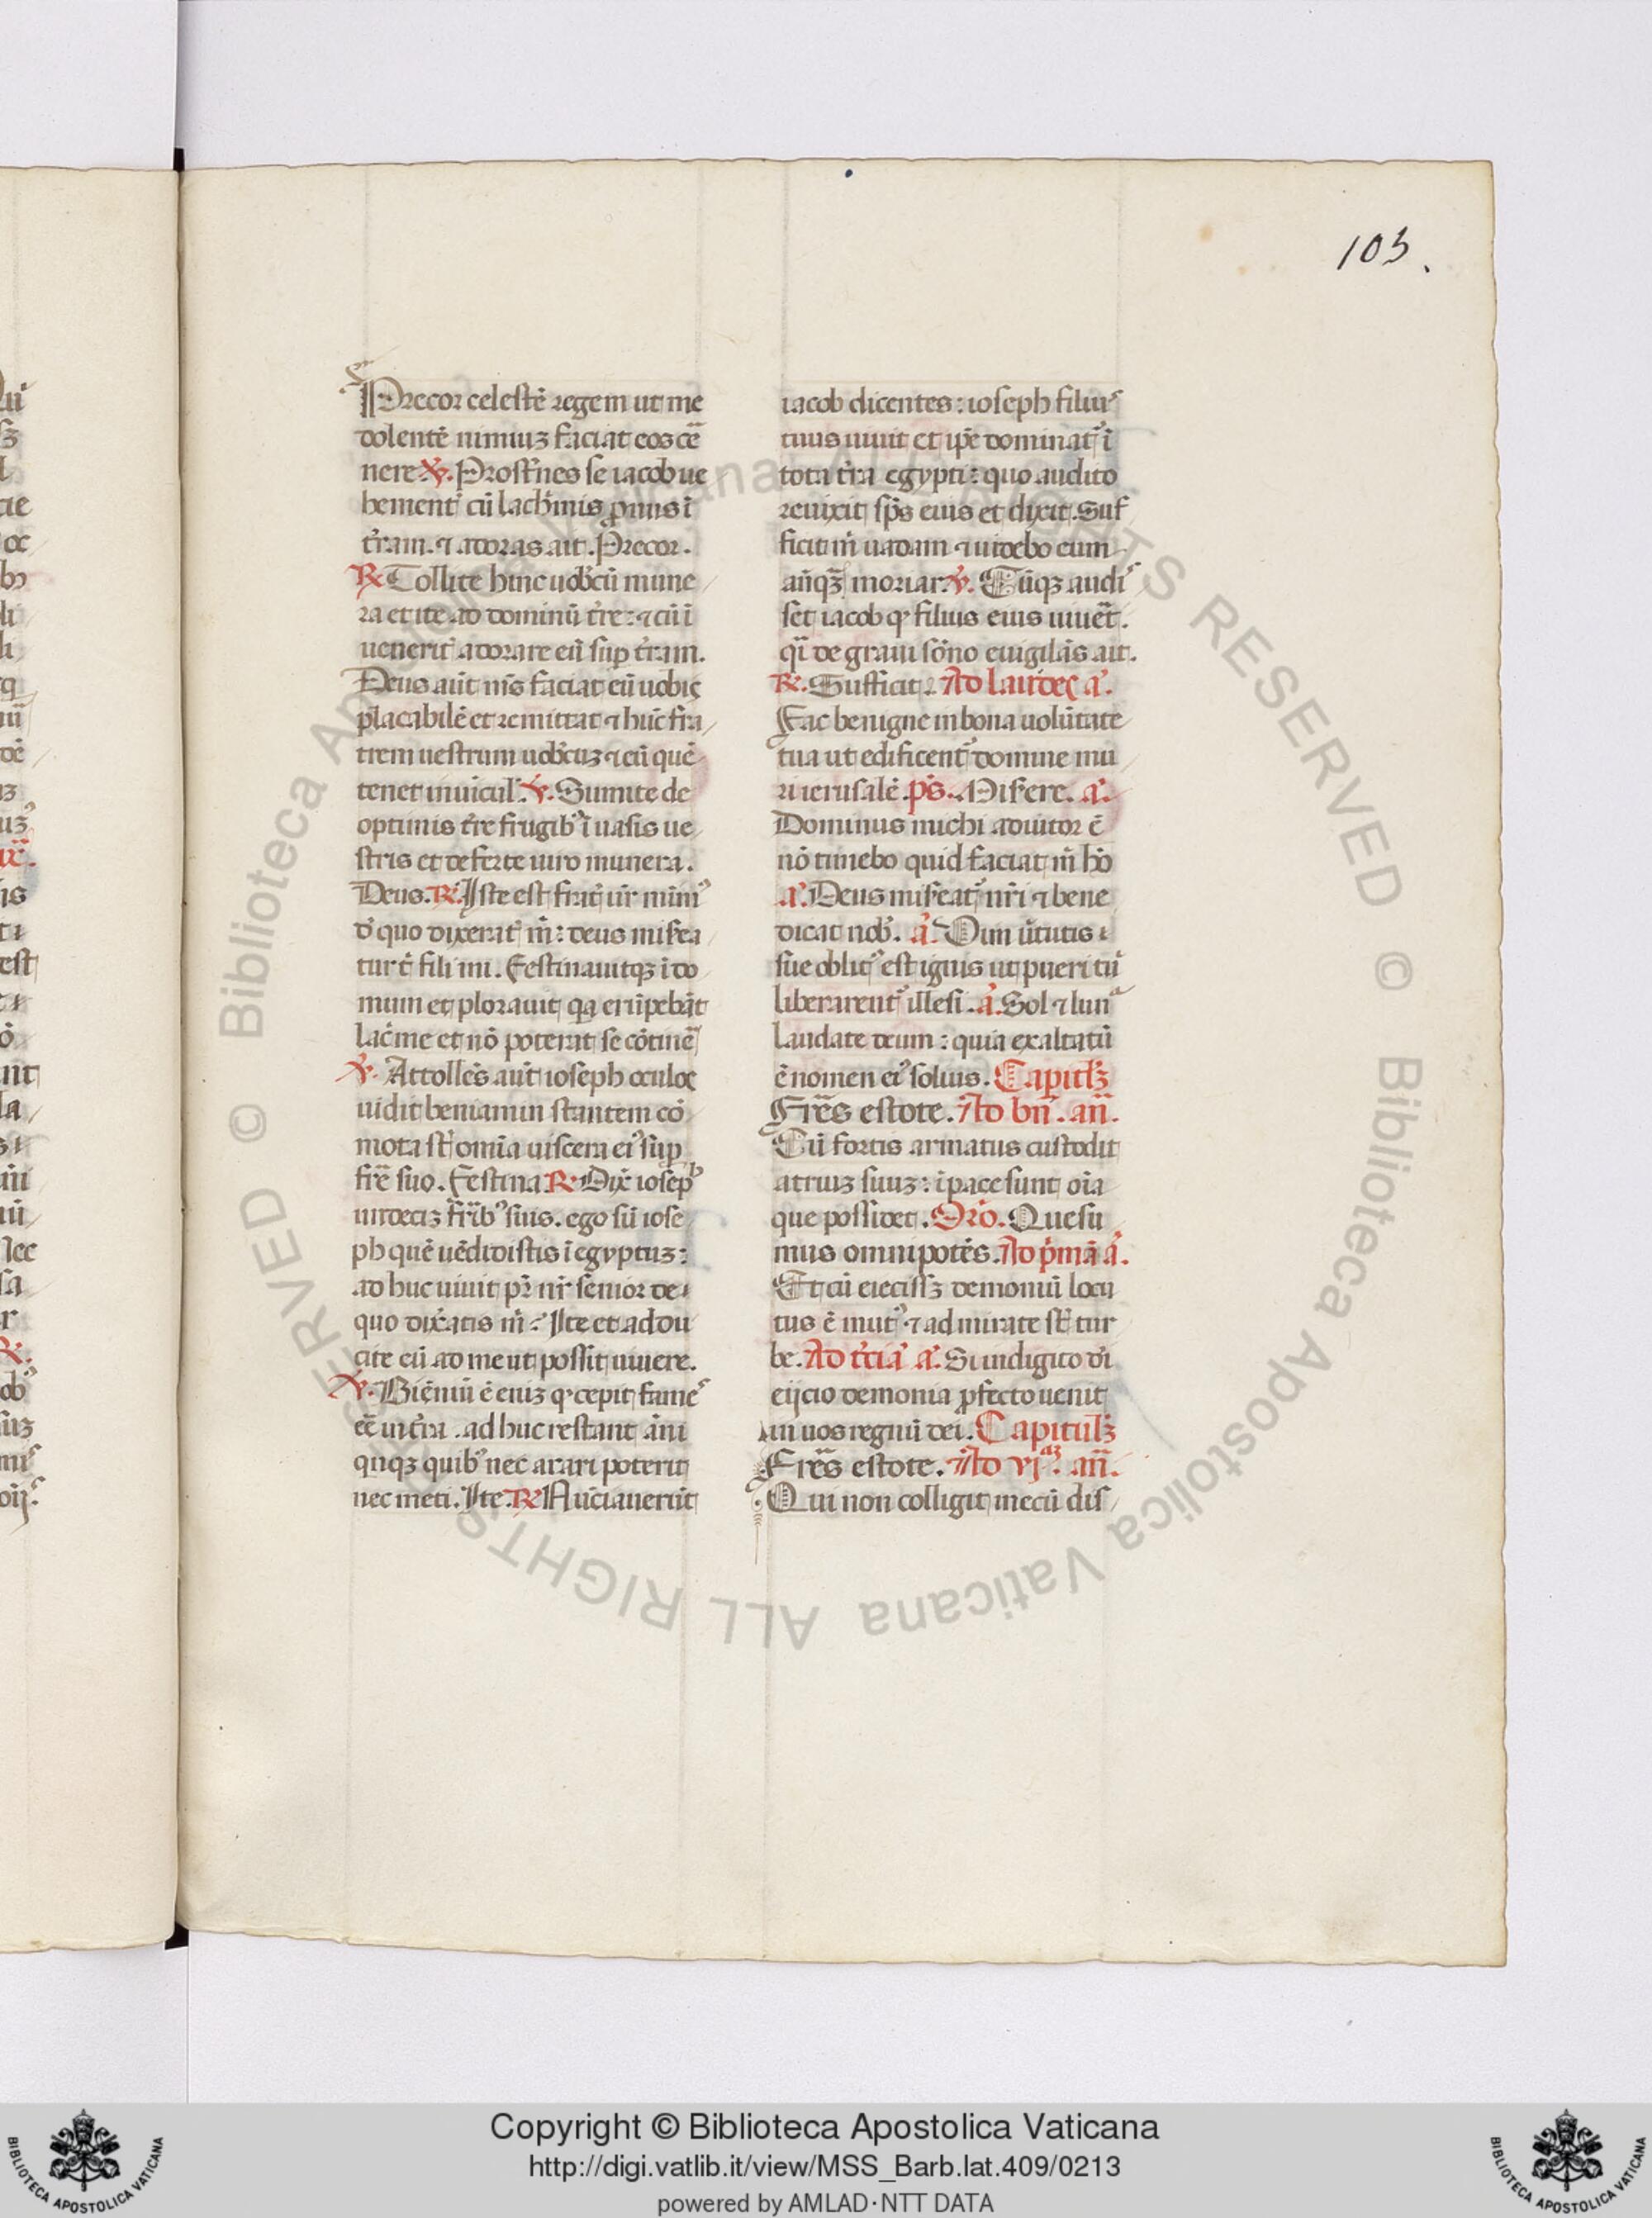 103.
Precor celestē regem ut me
dolentē nimiuz faciat eos cē
nere. ℣. Prost̄nes se iacob ue
hement̄ cū lach̄mis ꝓnus ī
t̄ram. ⁊ adoras ait. Precor.
℟ Tollite hinc uob̄cū mune
ra et ite ad dominū t̄re: ⁊ cū ī
uenerit̄ adorare eū sup t̄ram.
Deus aūt nr̄s faciat eū uobis
placabilē et remittat ⁊ huc̄ fra
trem uestrum uob̄cuz ⁊ eū quē
tenet in uīcul̄. ℣. Sumite de
optimis t̄re frugib᾿ ī uasis ue
stris et deferte uiro munera.
Deus. ℟. Iste est frat̄ ur̄ mīni᾿
d̄ quo dixerat᾿ m̄: deus misera
tur t̄ fili mi. Festinauitqz ī do
mum et plorauit qa erūpebāt
lac̄me et nō poterat se cōtinē
℣. Attollēs aūt ioseph oculos
uidit beniamin stantem cō
mota st̄ omīa uiscera ei᾿ sup
fr̄e suo. Festina ℟ Dix̄ ioseph
undeciz fr̄ib᾿ suis. ego sū iose
ph quē uēdidistis ī egyptuz:
ad huc uiuit pr̄ nr̄ senior de
quo dix̄atis m̄: Ite et addu
cite eū ad me ut possit uiuere.
℣. Biēniū ē eniz q᾿ cepit fames
eē in t̄ra. ad huc restant āni
qnqz quib᾿ nec arari poterit
nec meti. Ite. ℟ Nūciauerūt
iacob dicentes: ioseph filius
tuus uiuit et ip̄e dominat᾿ ī
tota t̄ra egypti: quo audito
reuixit sp̄s eius et dixit. Suf
ficit m̄ uadam ⁊ uidebo eum
an̄qz moriar. ℣. Cūqz audi
set iacob q᾿ filius eius uiuēt.
qi de graui sōno euigilās ait.
℟. Sufficit. Ad laudes a᾿.
Fac benigne in bona uolūtate
tua ut edificent᾿ domine mu
ri ierusalē. ps̄. Misere. a᾿.
Dominus michi adiutor ē
nō timebo quid faciat m̄ hō
a᾿. Deus miseat᾿ nr̄i ⁊ bene
dicat nob̄. a᾿. Uim ūtutis
sue oblit᾿ est ignis ut pueri tu᾿
liberarent᾿ illesi. a᾿. Sol ⁊ luna
laudate deum: quia exaltatū
ē nomen ei᾿ solius. Capitlz
Frēs estote. Ad bn̄. an̄.
Cū fortis armatus custodit
atriuz suuz: ī pace sunt oīa
que possidet. Orō. Quesu
mus omnipotēs. Ad p̄mā a᾿.
Et cū eiecissz demoniū locu
tus ē mut᾿ ⁊ admirate st̄ tur
be. Ad t̄ciā a᾿. Si in digito dī
eijcio demonia ꝓfecto uenit
in uos regnū dei. Capitulz
Frēs estote. Ad vjaz. an̄.
Qui non colligit mecū dis
© Biblioteca Apostolica Vaticana ALL RIGHTS RESERVED © Biblioteca Apostolica Vaticana ALL RIGHTS RESERVED
Copyright © Biblioteca Apostolica Vaticana
http://digi.vatlib.it/view/MSS_Barb.lat.409/0213
powered by AMLAD·NTT DATA
BIBLIOTECA APOSTOLICA VATICANA
BIBLIOTECA APOSTOLICA VATICANA